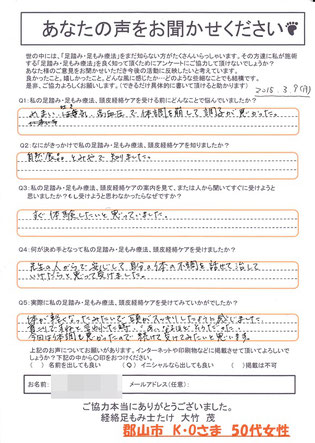 あなたの声をお聞かせください
世の中には、「足踏み・足もみ療法」をまだ知らない方がたくさんいらっしゃいます。その方達に私が施術
する「足踏み・足もみ療法」を良く知って頂くためにアンケートにご協力して頂けないでしょうか?
あなた様のご意見をお聞かせいただき今後の活動に反映したいと考えています。
良かったこと、嬉しかったこと、どんな風に感じたか…どのような些細なことでも結構です。
是非、ご協力よろしくお願いします。(できるだけ具体的に書いて頂けると助かります)
2015.3.9(月)
Q1:私の足踏み・足もみ療法、頭皮経絡ケアを受ける前にどんなことで悩んでいましたか?
めまい、高血圧で体調を崩して調子が悪かった。
Q2:なにがきっかけで私の足踏み・足もみ療法、頭皮経絡ケアを知りましたか?
自然食品とみやで知りました。
Q3:私の足踏み・足もみ療法、頭皮経絡ケアの案内を見て、または人から聞いてすぐに受けようと
思いましたか?もし受けようと思わなかったらなぜですか?
すぐ体験したいと思っていました。
Q4:何が決め手となって私の足踏み・足もみ療法、頭皮経絡ケアを受けましたか?
先生の人がらで安心して自分の体の不調を話せて治して
いけたらと思って受けました。
Q5:実際に私の足踏み・足もみ療法、頭皮経絡ケアを受けてみていかがでしたか?
体が軽くなったみたいで頭がスッキリしたように感じました。
今回は体調も良かったので続けて受けてみたいと思います。
上記のお声についてお願いがあります。インターネットや印刷物などに掲載させて頂いてよろしいで
しょうか?下記の中から◯印をおつけください。
( )名前を出しても良い (○)イニシャルなら出しても良い ( )掲載は不可
お名前: メールアドレス(任意):
ご協力本当にありがとうございました。
経絡足もみ士たけ 大竹 茂
郡山市 K・Oさま 50代女性